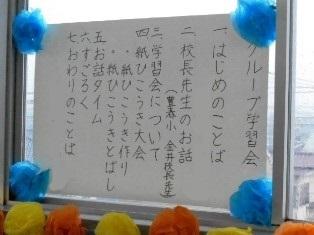 グループ学習会
一、はじめのことば
二、校長先生のお話
（豊春小 金井校長先生）
三、学習会について
四、紙ひこうき大会
・紙ひこうき作り
・紙ひこうきとばし
五、お話タイム
六、すごろく
七、おわりのことば